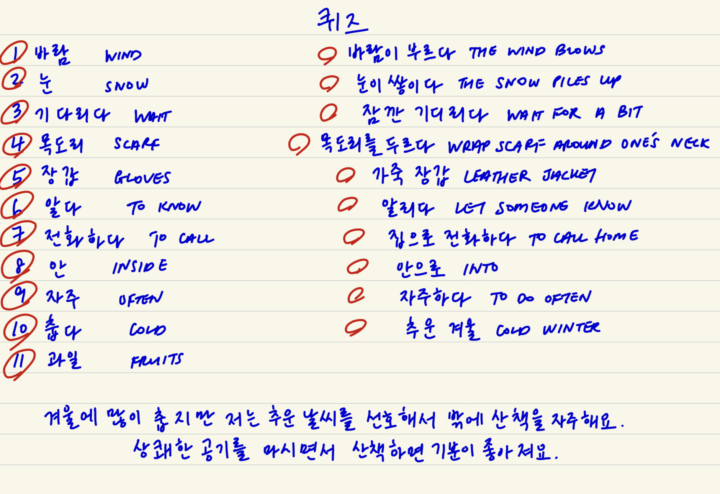 퀴즈
1 바람 WIND 바람이 부르다 THE WIND BLOWS
2 눈 SNOW 눈이 쌓이다 THE SNOW PILES UP
3 기다리다 WAIT 잠깐 기디리다 WAIT FOR A BIT
4 목도리 SCARF 목도리를 두르다 WRAP SCARF AROUND ONE'S NECK
5 장갑 GLOVES 가죽 장갑 LEATHER JACKET
6 알다 TO KNOW 알리다 LET SOMEONE KNOW
7 전화하다 TO CALL 집으로 전화하다 TO CALL HOME
8 안 INSIDE 안으로 INTO
9 자주 OFTEN 자주하다 TO DO OFTEN
10 춥다 COLD 추운 겨울 COLD WINTER
11 과일 FRUITS
겨울에 많이 춥지만 저는 추운 날씨를 선호해서 밖에 산책을 자주해요.
상쾌한 공기를 마시면서 산책하면 기분이 좋아져요.